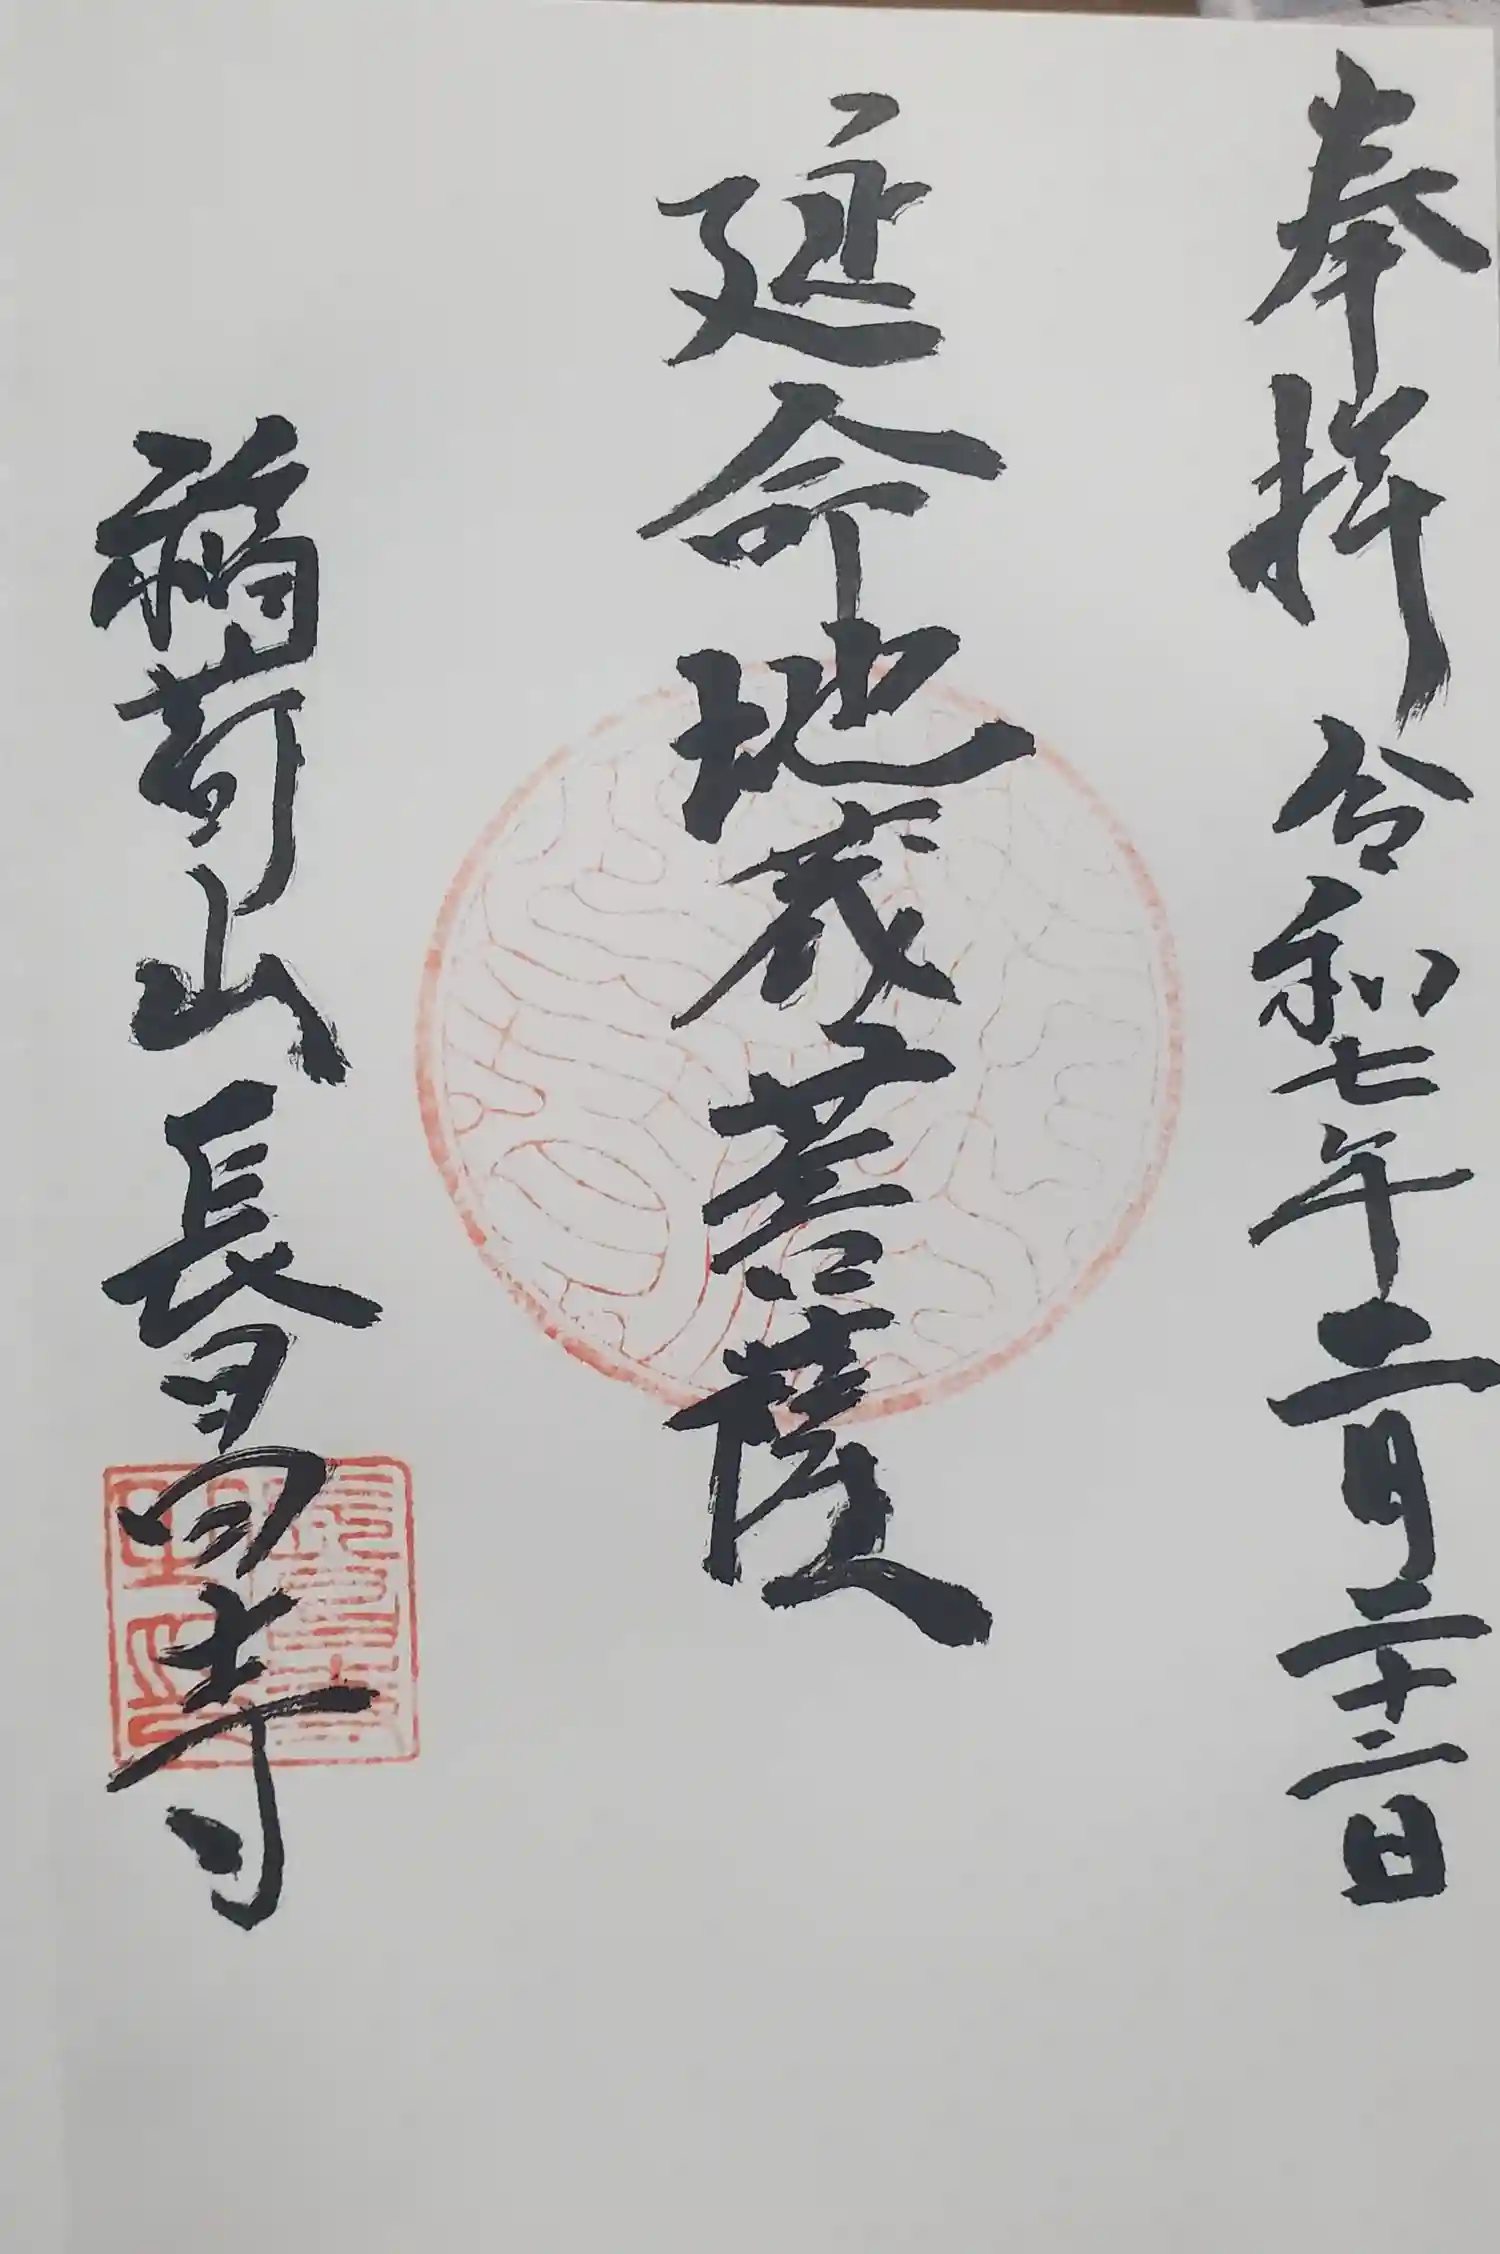 奉拝 令和七年二月二十二日
延命地蔵菩薩
稲荷山長昌寺